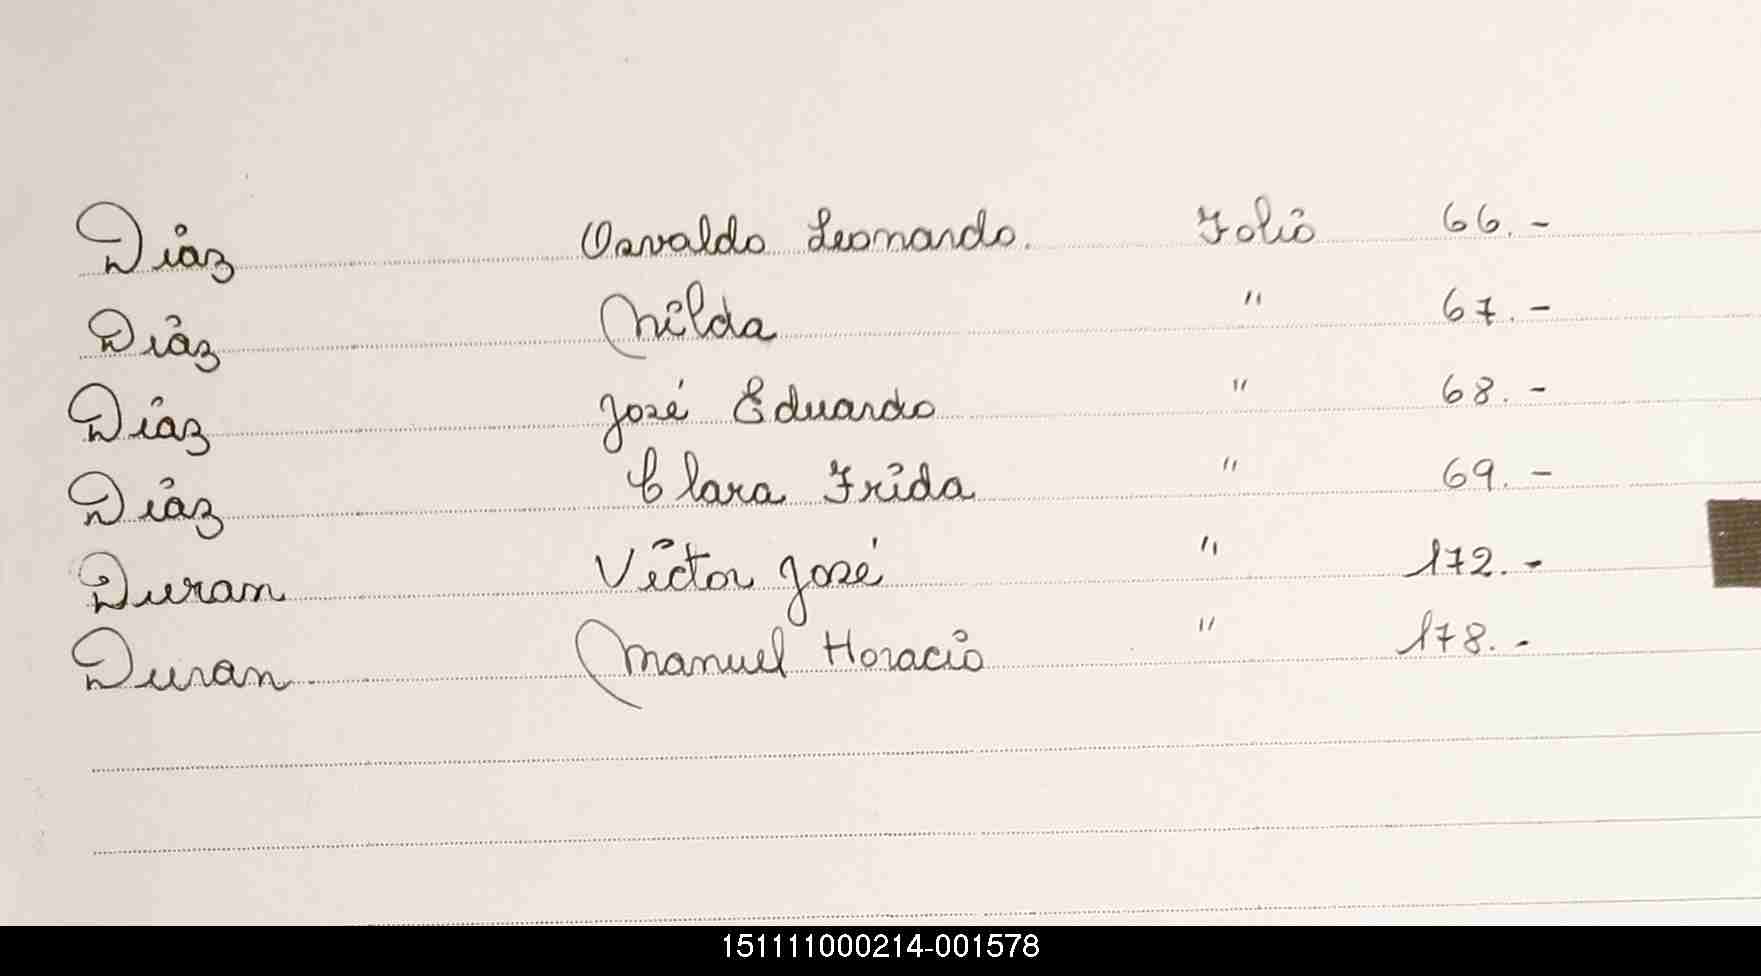 Diaz Osvaldo Leonardo. Folio 66.-
Diaz Nilda " 67.-
Diaz José Eduardo " 68.-
Diaz Clara Frida " 69.-
Duran Victor José " 172.-
Duran Manuel Horacio " 178.-
151111000214-001578